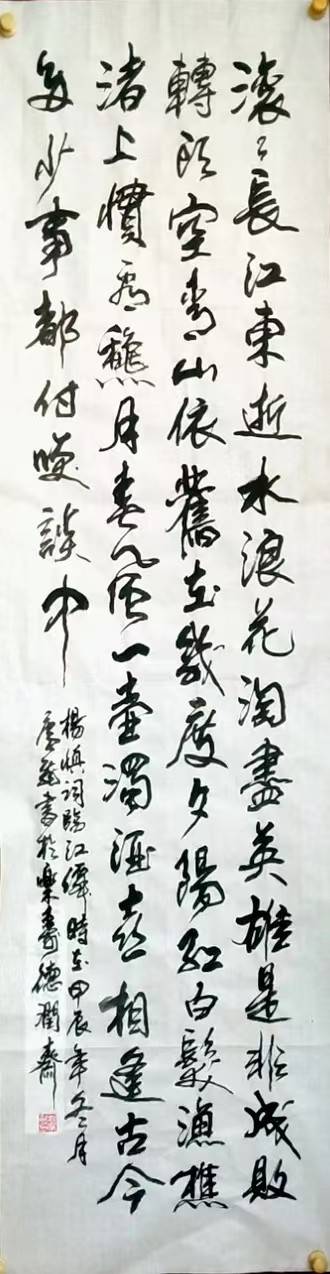 滚々長江東逝水浪花淘盡英雄是非成敗
轉頭空青山依舊在幾度夕陽紅白髮漁樵
渚上慣看龝月春風一壺濁酒喜相逢古今
多少事都付咲談中
楊慎詞臨江僊時在甲辰年冬月
書於樂壽德潤齋